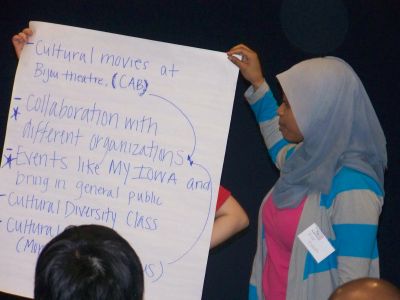 - Cultural movies at
Bijou theatre. (CAB)
- Collaboration with
different organizations
- Events like MY IOWA and
bring in general public
- Cultural Diversity Class
- Cultural
(Mor